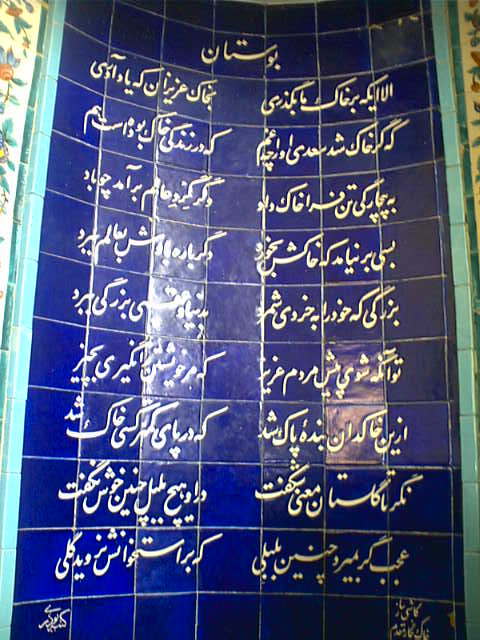 بوستان
الا ایکه بر خاک ما بگذری بخاک عزیزان که یاد آوری
که گر خاک شد سعدی او را چه غم که در زندگی خاک بوده است هم
به بیچارگی تن فرا خاک داد وگر گرد عالم برآمد چو باد
بسی بر نیامد که خاکش بخورد دگر باره بادش بعالم ببرد
بزرگی که خود را به خردی شمرد بدنیا و عقبی بزرگی ببرد
تو آنگه شوی پیش مردم عزیز که مر خویشتن را نگیری بچیز
ازین خاکدان بندهٔ پاک شد که در پای کمتر کسی خاک شد
نگر تا گلستان معنی شکفت در او هیچ بلبل چنین خوش نگفت
عجب گر بمیرد چنین بلبلی که بر استخوانش نروید گلی
کاشی ساز